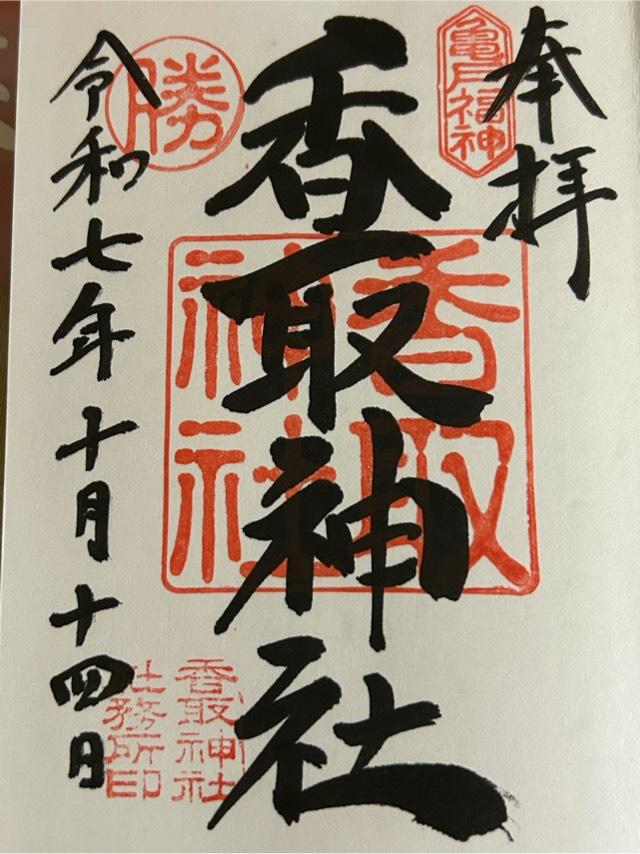 奉拝
亀戸福神
香取神社
香取
神社
勝
香取神社
社務所印
令和七年十月十四日